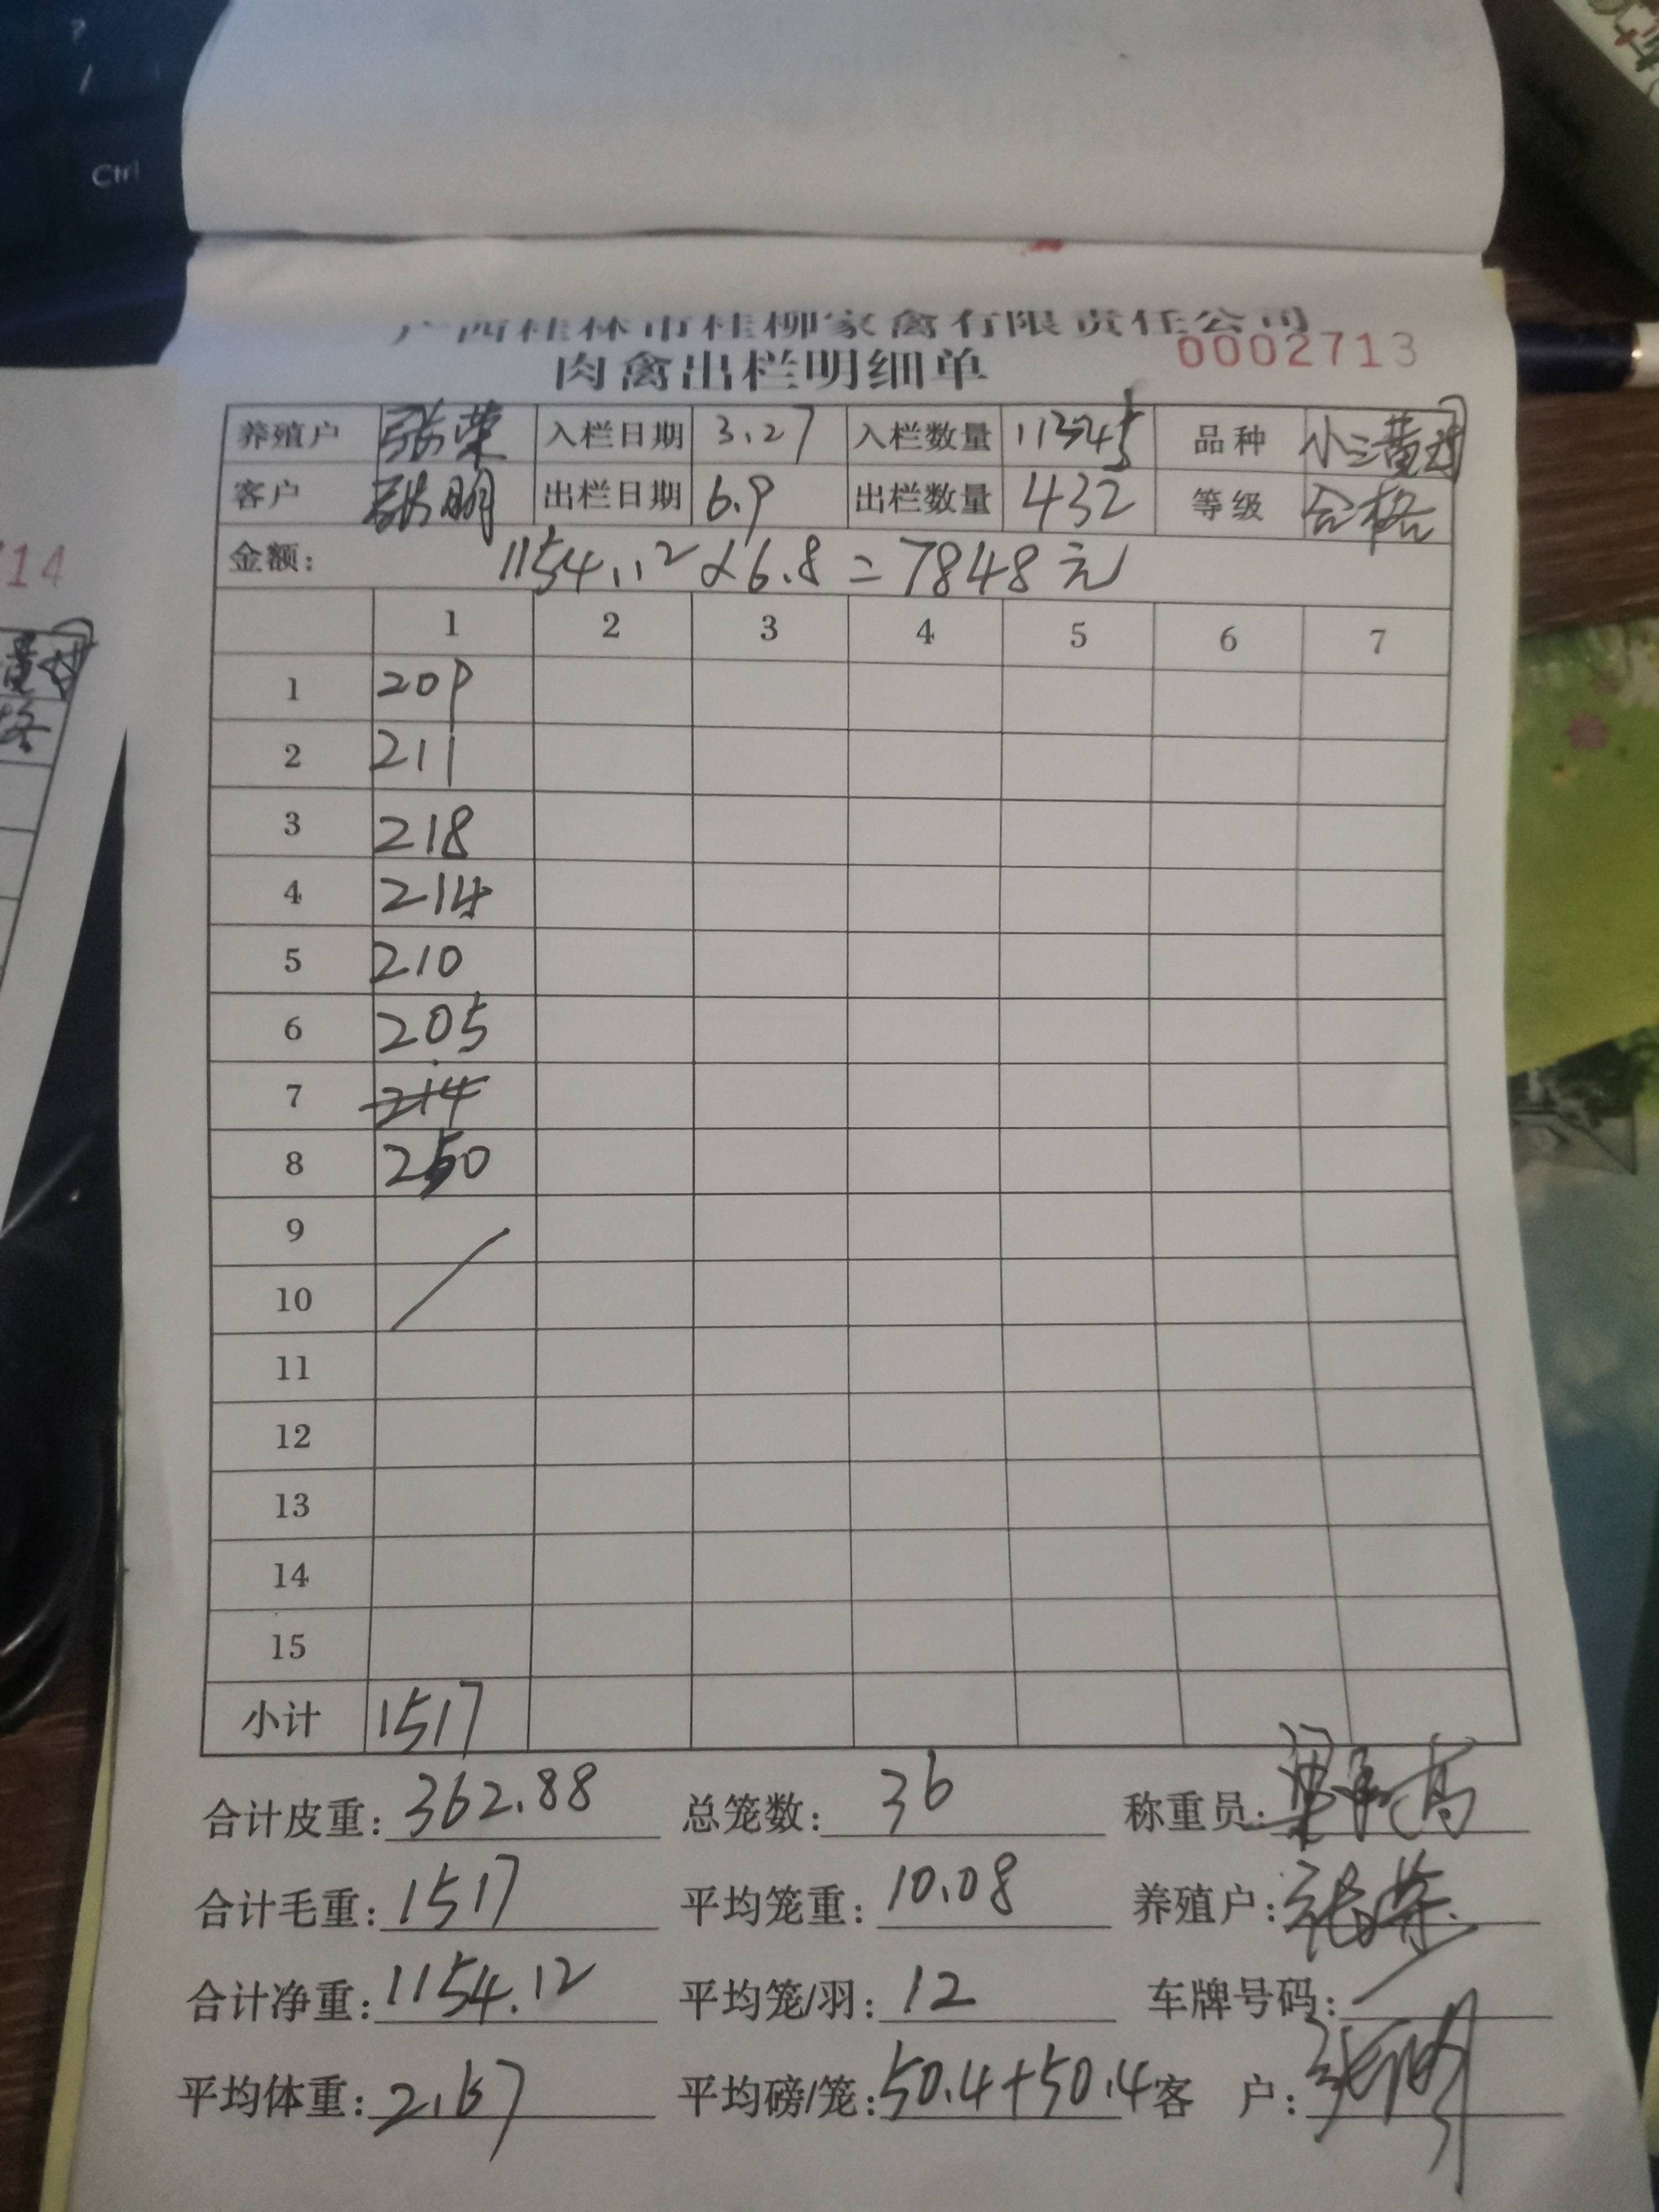 Ctrl
广西桂林市桂柳家禽有限责任公司
肉禽出栏明细单
0002713
养殖户 张荣 入栏日期 3.27 入栏数量 11345 品种 小三黄
客户 张明 出栏日期 6.9 出栏数量 432 等级 合格
金额: 1154.12×6.8=7848元
1 2 3 4 5 6 7
1 209
2 211
3 218
4 214
5 210
6 205
7 214
8 250
9
10
11
12
13
14
15
小计 1517
合计皮重: 362.88 总笼数: 36 称重员:
合计毛重: 1517 平均笼重: 10.08 养殖户: 张荣
合计净重: 1154.12 平均笼/羽: 12 车牌号码:
平均体重: 2.67 平均磅/笼: 50.4+50.4 客 户: 张明
14